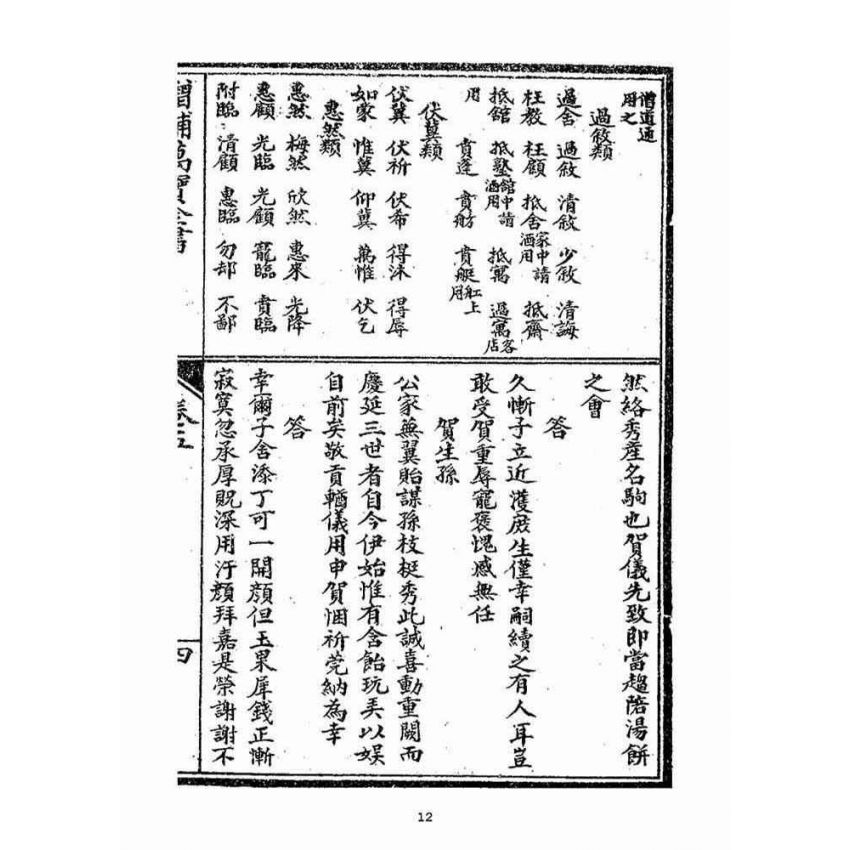 僧道通
用之
過敘類
過舍 過敘 清敘 少敘 清誨
枉教 枉顧 抵舍家中請酒用 抵齋
抵館 抵塾館中請酒用 抵寓 過寓客店
用 賁蓬 賁舫 賁艇舡上用
伏冀類
伏冀 伏祈 伏希 得沬 得辱
如蒙 惟冀 仰冀 萬惟 伏乞
惠然類
惠然 梅然 欣然 惠來 光降
惠顧 光臨 光顧 寵臨 賁臨
附臨 清顧 惠臨 勿却 不鄙
然絡秀産名駒也賀儀先致即當趨陪湯餅
之會
答
久慚子立近濩庶生僅幸嗣續之有人耳豈
敢受賀重辱寵褒愧感無任
賀生孫
公家燕翼貽謀孫枝挺秀此誠喜動重闕而
慶延三世者自今伊始惟有含飴玩弄以娱
自前矣敬貢輶儀用申賀悃祈莞納為幸
答
幸爾子舍添丁可一開顔但玉果犀錢正慚
寂寞忽承厚貺深用汗顔拜嘉是榮謝謝不
增補萬寶全書
卷五
四
12